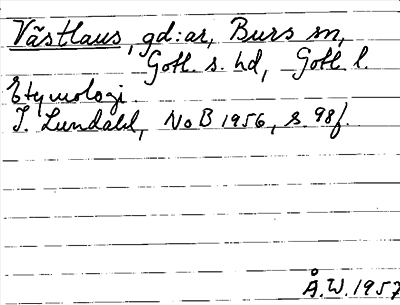 Västlaus, gd:ar, Burs sn,
Gotl. s. hd, Gotl. l.
Etymologi.
I. Lundahl, NoB 1956, s. 98f.
Å.W. 1957